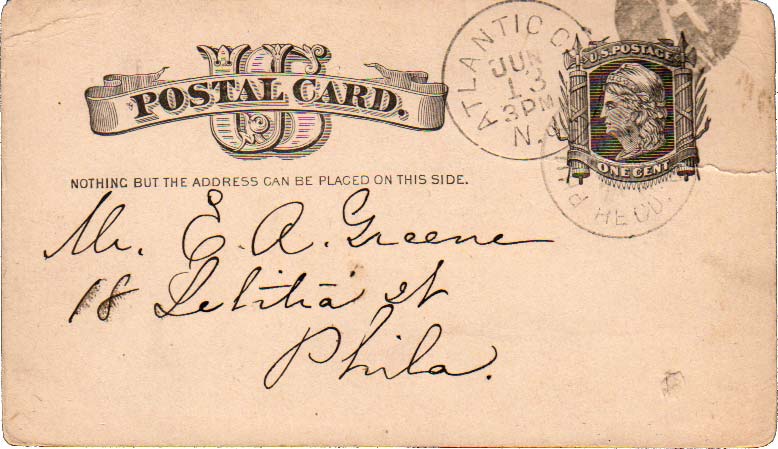 US
POSTAL CARD.
NOTHING BUT THE ADDRESS CAN BE PLACED ON THIS SIDE.
ATLANTIC C
JUN
13
3 PM
N.
U.S. POSTAGE
ONE CENT
Mr. E. A. Greene
18 Letitia st
Phila.